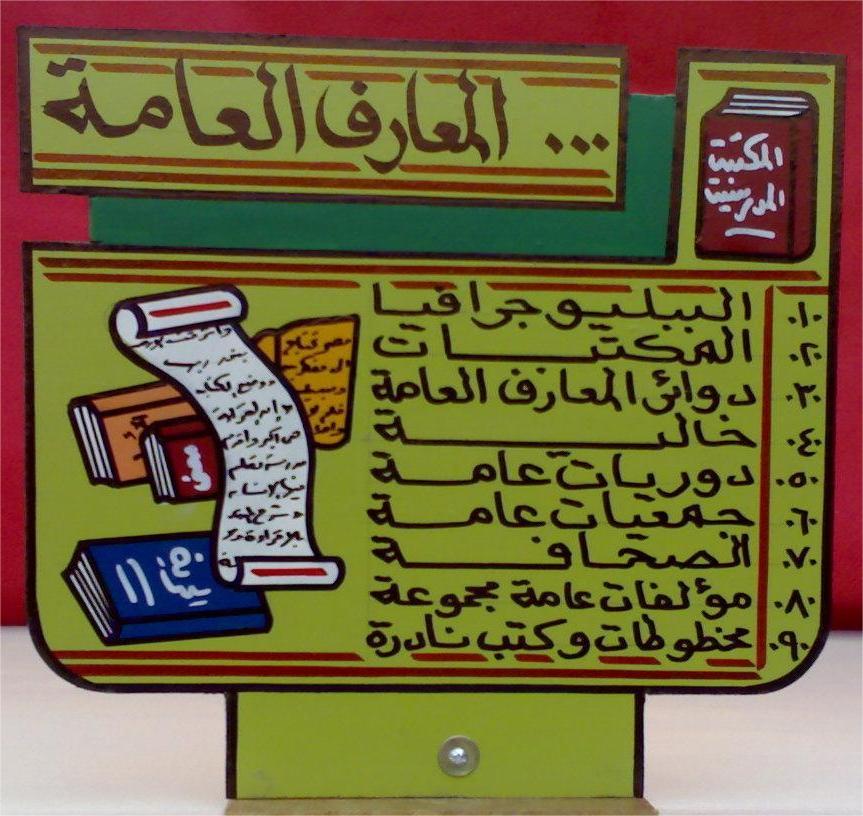 ٠٠٠ المعارف العامة
المكتبة
المدرسية
٠١٠ الببليوجرافيا
٠٢٠ المكتبات
٠٣٠ دوائر المعارف العامة
٠٤٠ خالية
٠٥٠ دوريات عامة
٠٦٠ جمعيات عامة
٠٧٠ الصحافة
٠٨٠ مؤلفات عامة مجموعة
٠٩٠ مخطوطات وكتب نادرة